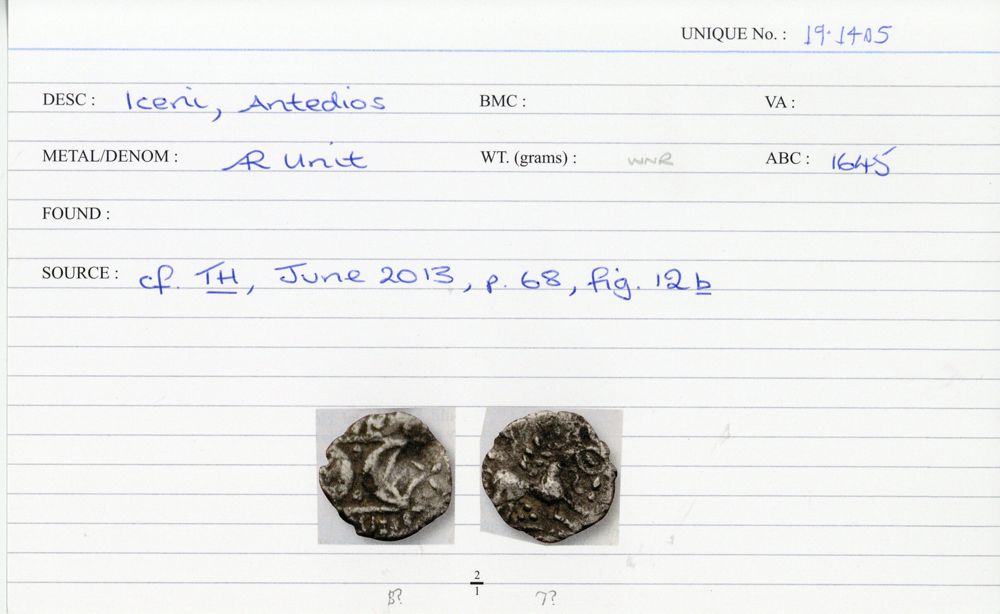 UNIQUE No. : 19.1405
DESC : Iceni, Antedios BMC : VA :
METAL/DENOM : AR Unit WT. (grams) : WNR ABC : 1645
FOUND :
SOURCE : cf. TH, June 2013, p. 68, fig. 12b
2
1
8? 7?